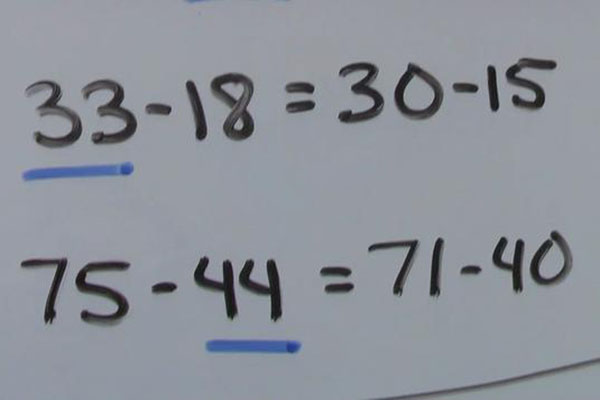 33-18=30-15
75-44=71-40